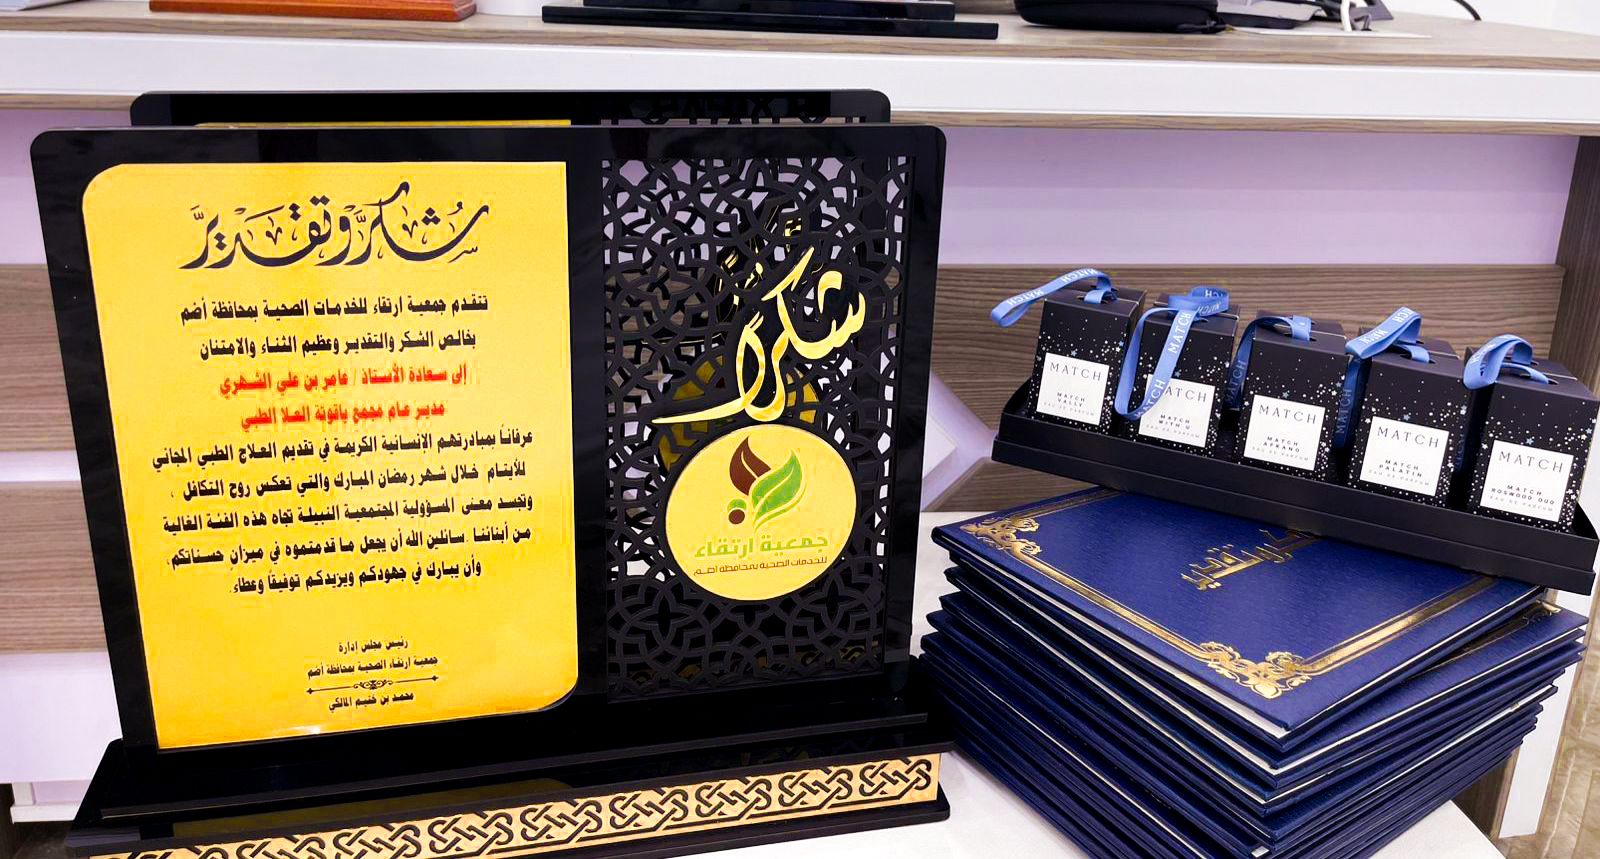 شكر وتقدير
تتقدم جمعية ارتقاء للخدمات الصحية بمحافظة أضم
بخالص الشكر والتقدير وعظيم الثناء والامتنان
إلى سعادة الأستاذ / عامر بن علي الشهري
مدير عام مجمع ياقوتة العلا الطبي
عرفاناً بمبادرتهم الإنسانية الكريمة في تقديم العلاج الطبي المجاني
للأيتام خلال شهر رمضان المبارك والتي تعكس روح التكافل ،
وتجسد معنى المسؤولية المجتمعية النبيلة تجاه هذه الفئة الغالية
من أبنائنا .سائلين الله أن يجعل ما قدمتموه في ميزان حسناتكم،
وأن يبارك في جهودكم ويزيدكم توفيقاً وعطاء.
رئيس مجلس إدارة
جمعية ارتقاء الصحية بمحافظة أضم
محمد بن خنيم المالكي
شكراً
جمعية ارتقاء
للخدمات الصحية بمحافظة أضم
MATCH
MATCH
MATCH
MATCH
MATCH
VALLY
EAU DE PARFUM
MATCH
MATCH
WITH U
EAU DE PARFUM
MATCH
MATCH
AFRANO
EAU DE PARFUM
MATCH
MATCH
PALATIN
EAU DE PARFUM
MATCH
MATCH
ROSWOOD OUD
EAU DE PARFUM
وتقدير